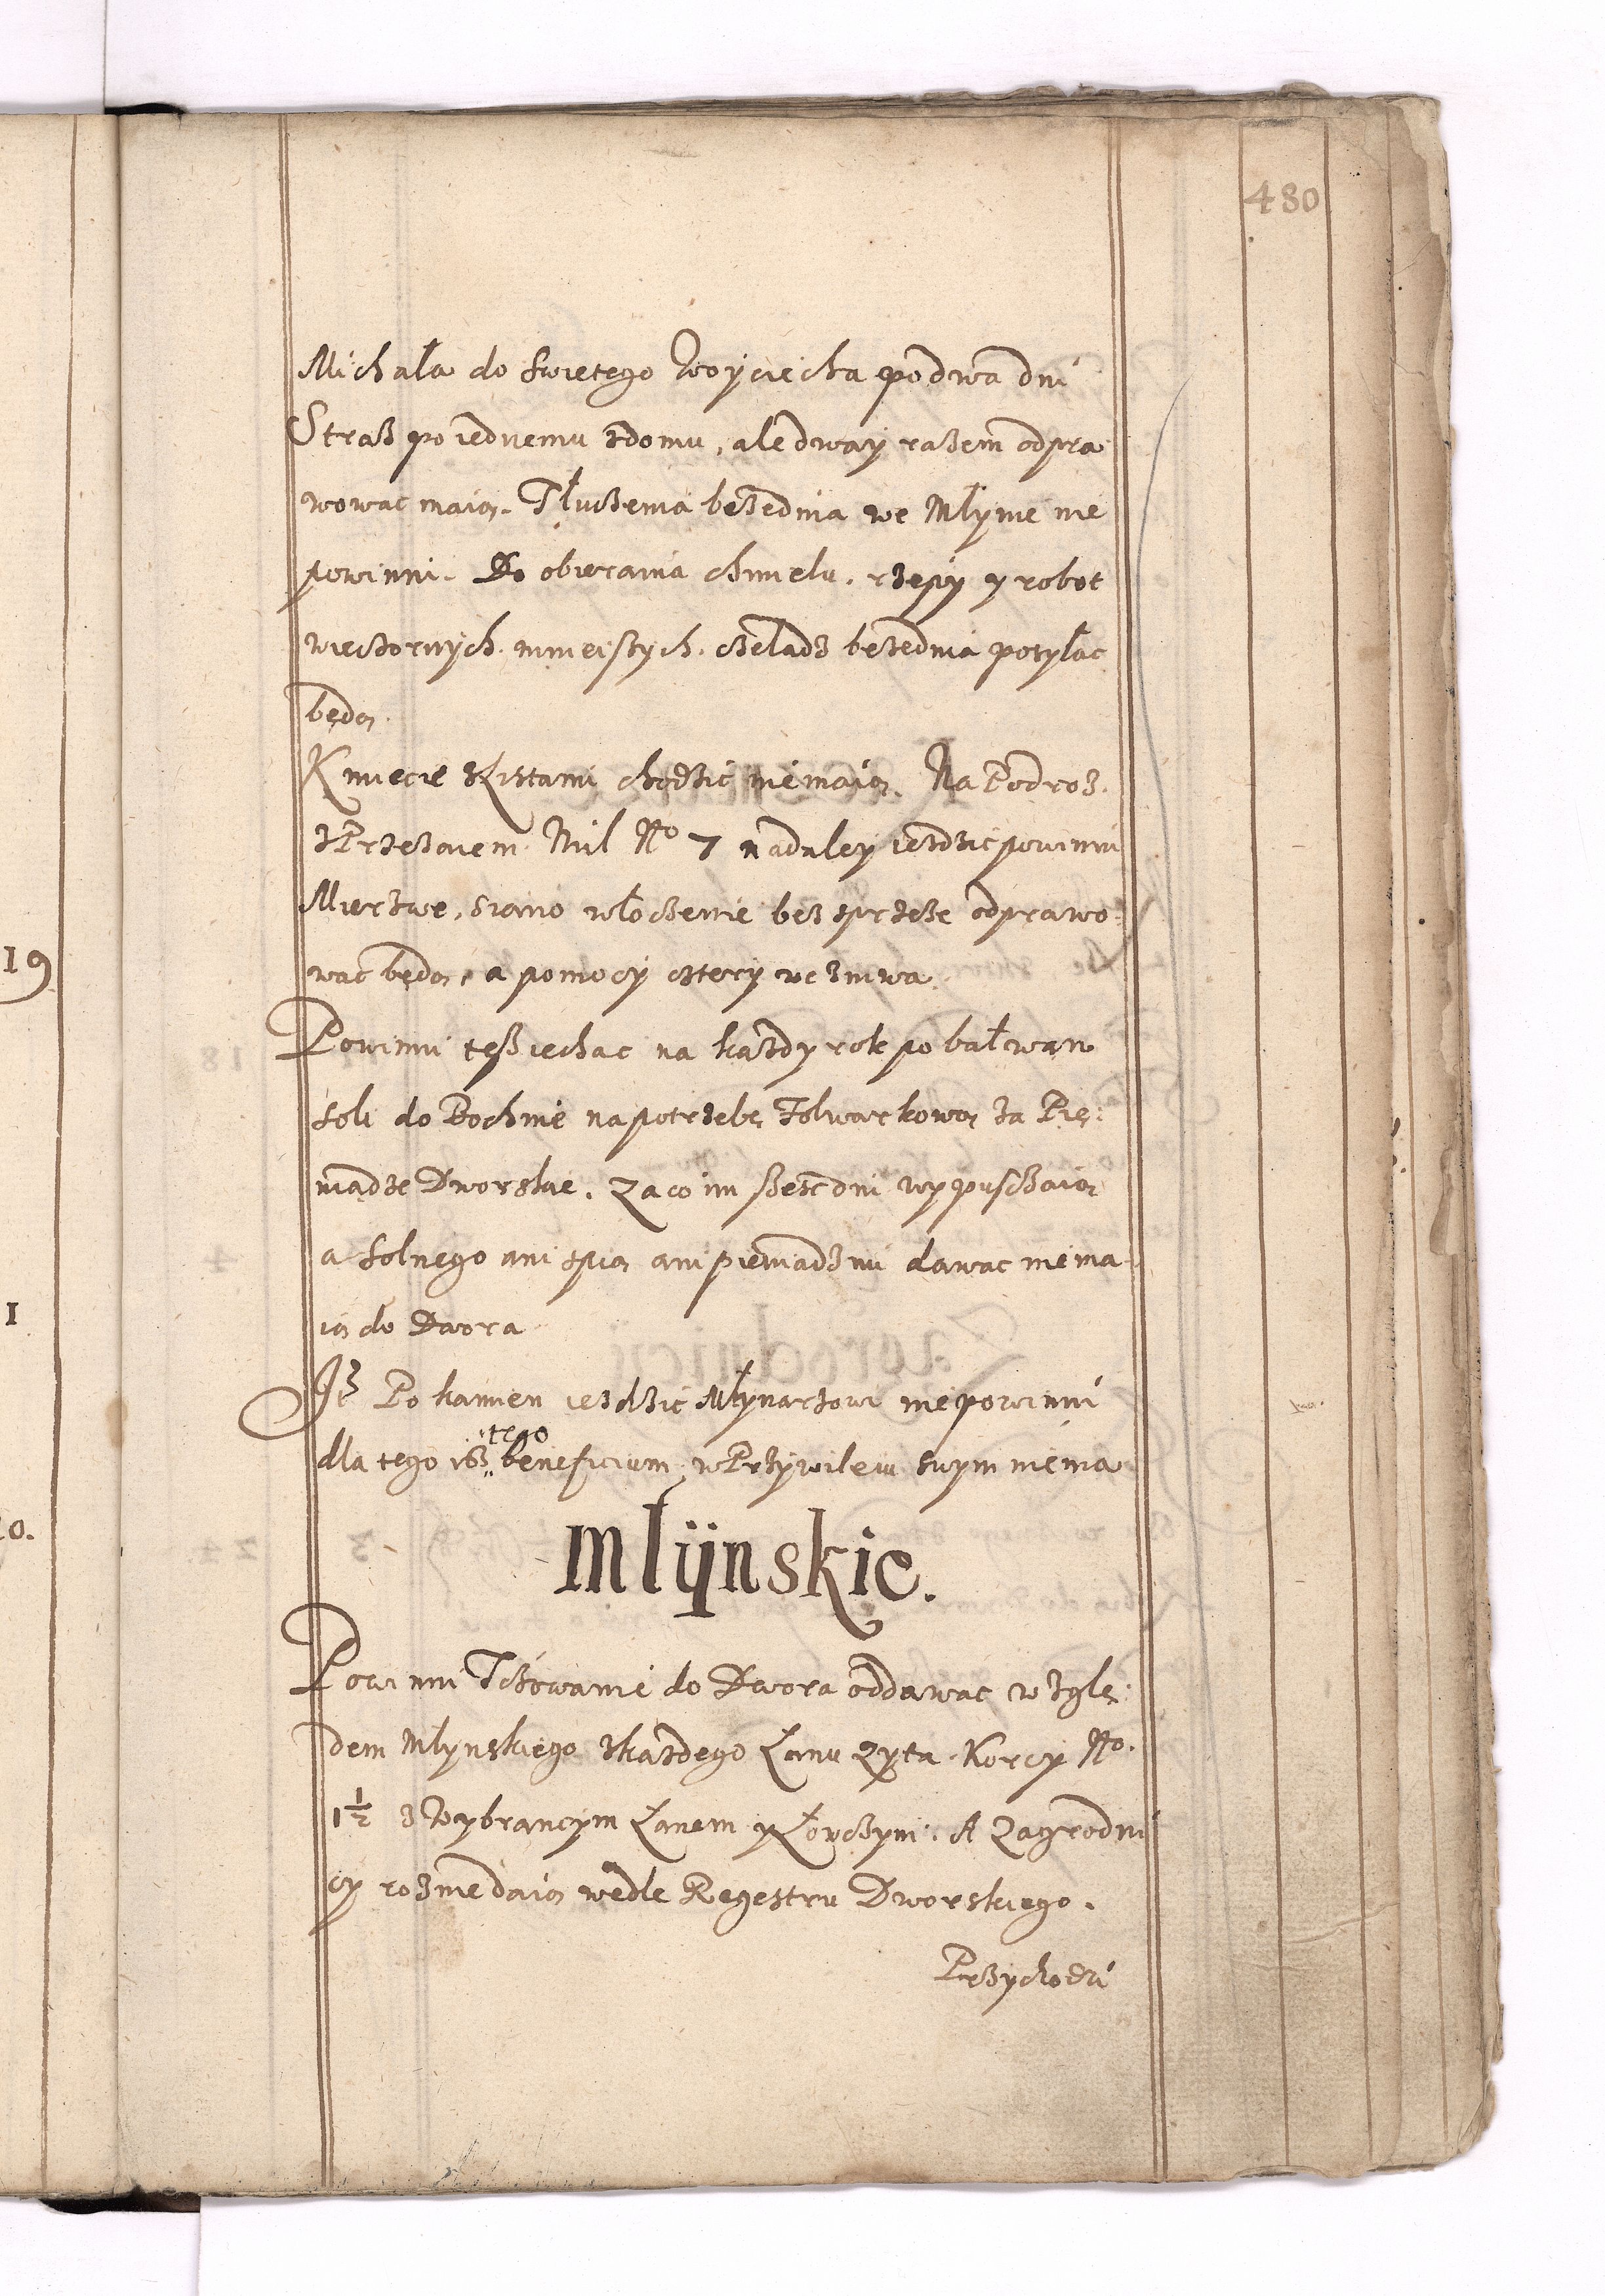 480
Michała do swiętego Woyciecha podwa dni
Straß po iednemu zdomu, aledway raßem odpra
wowac maią. Tłuczenia bezednia we Młynie nie
powinni. Do obierania chmelu, rzepy y robot
wieczornych mnieiszych, czeladz bezednia posyłac
będą.
Kmiecie zListami chodzic niemaią. Na Podroz.
zPrzezaiem Mil No 7 nadaley iezdzic powinni
Mierzwe, siano włoczenie bez sprzeze odprawo
wac będą, a pomocy cztery we zniwa.
Powinni teß iechac na kazdy rok po bałwan
soli do Bochnie napotrzebę folwarkową za Pie
niądze Dworskie. Zaco im szesc dni wypusczaią
a solnego ani spią ani pieniadzmi dawac niema
ią do Dwora
Iz Po kamien iezdzic Młynarzowi niepowinni
dla tego iß tego beneficium wPrzywileiu swym niema
Mlÿnskie.
Powinni Tczowanie do Dwora oddawac wzglę
dem Młynskiego zkazdego Łanu Zyta Korcy No.
1 1/2 zWybrancym Łanem yŁowczym. A Zagrodni
cy rozniedaią wedle Regestru Dworskiego.
Przychodzi
19
1
20.